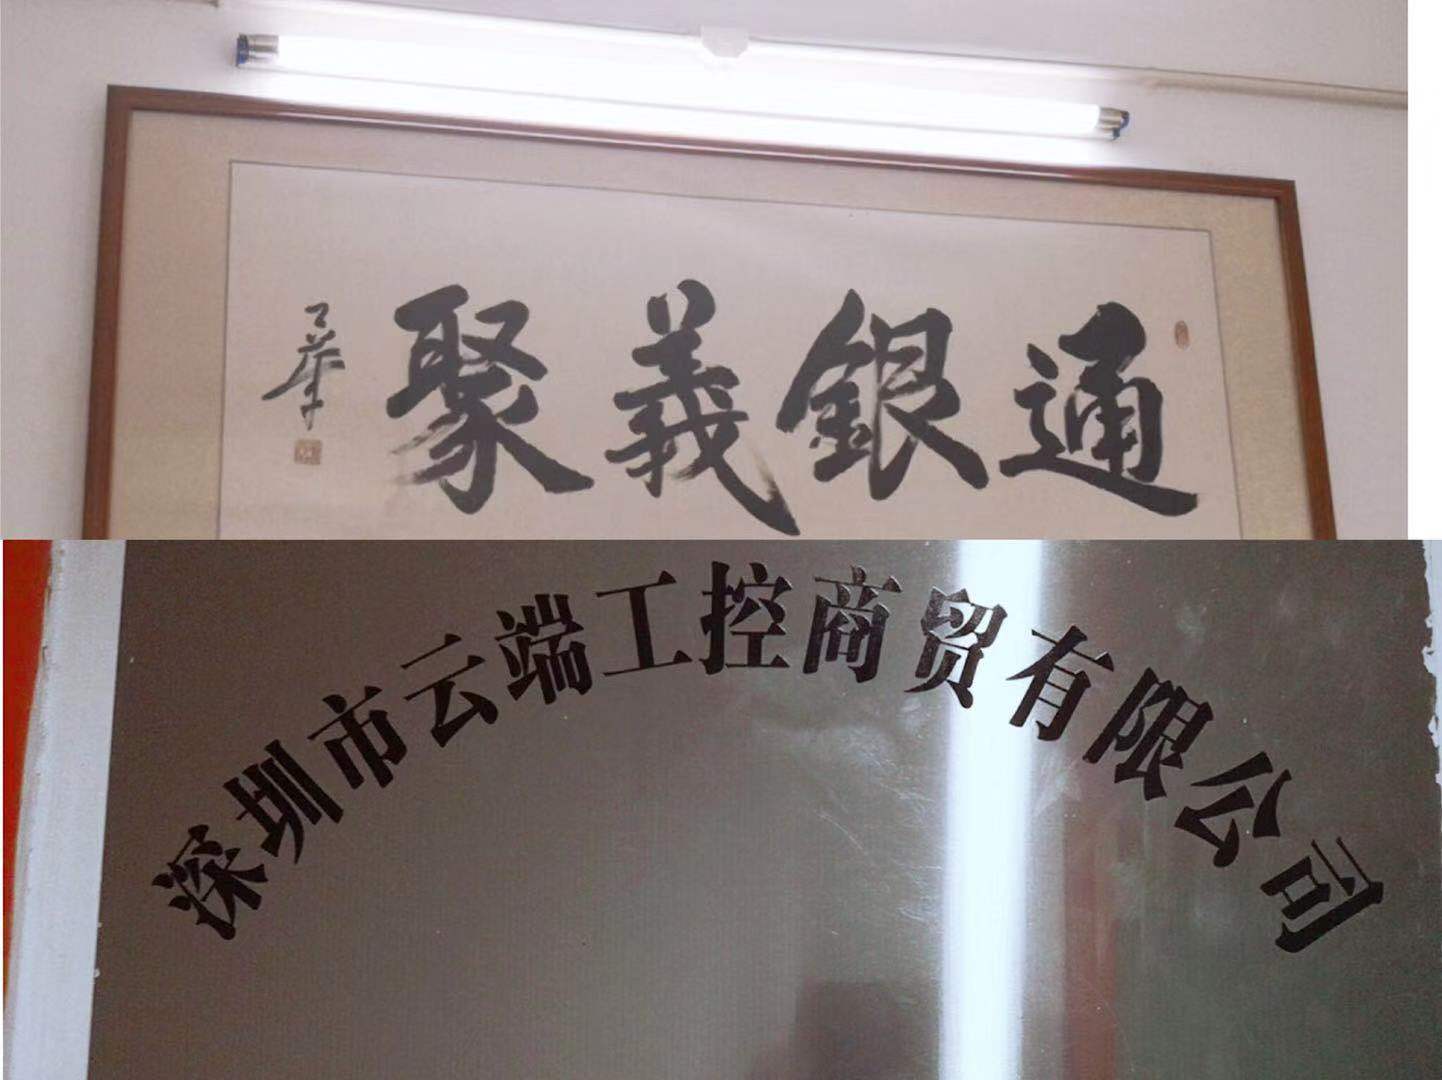 通銀義聚
深圳市云端工控商贸有限公司